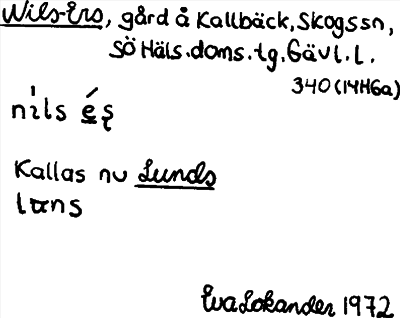 Nils-Ers, gård å Kallbäck, Skogs sn,
SÖ Häls. doms. tg. Gävl. l.
340 (14H6a)
nı̍ls é̲s̨
Kallas nu Lunds
lɯns
Eva Lokander 1972